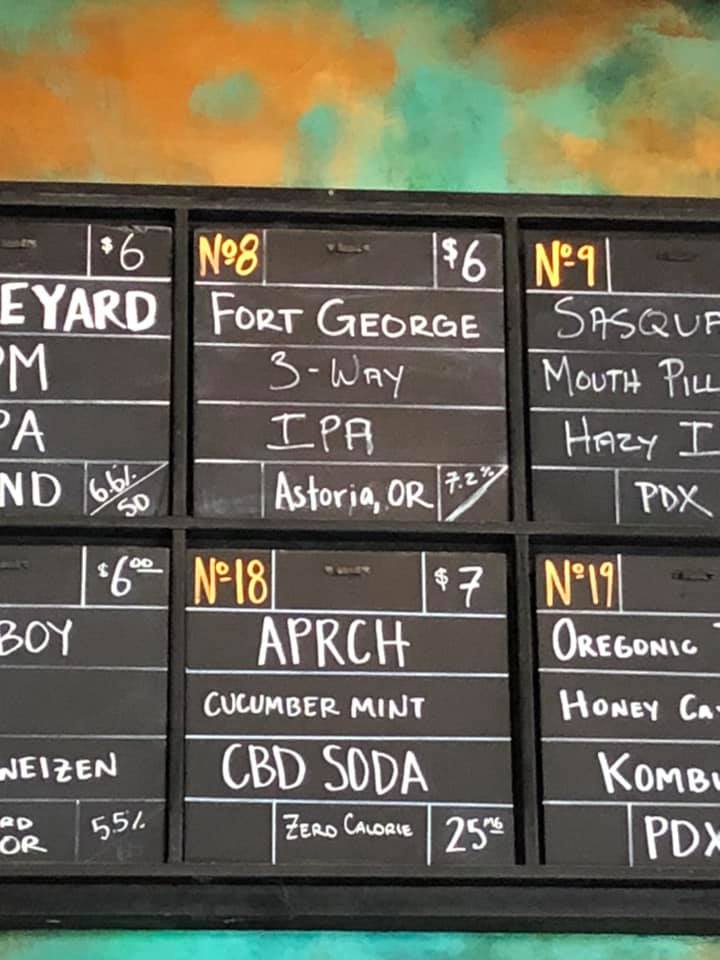 $6
EYARD
PM
PA
ND 6.6% 50
Nº8 $6
FORT GEORGE
3-WAY
IPA
Astoria, OR 7.2%
Nº9
SASQU
MOUTH PILL
HAZY I
PDX
$600
BOY
WEIZEN
RD
OR 5.5%
Nº18 $7
APRCH
CUCUMBER MINT
CBD SODA
ZERO CALORIE 25MG
Nº19
OREGONIC
HONEY CA
KOMBU
PDX